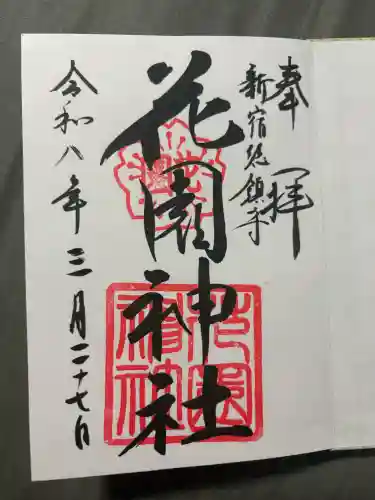 奉拝
新宿総鎮守
花園神社
令和八年三月二十七日
花園神社